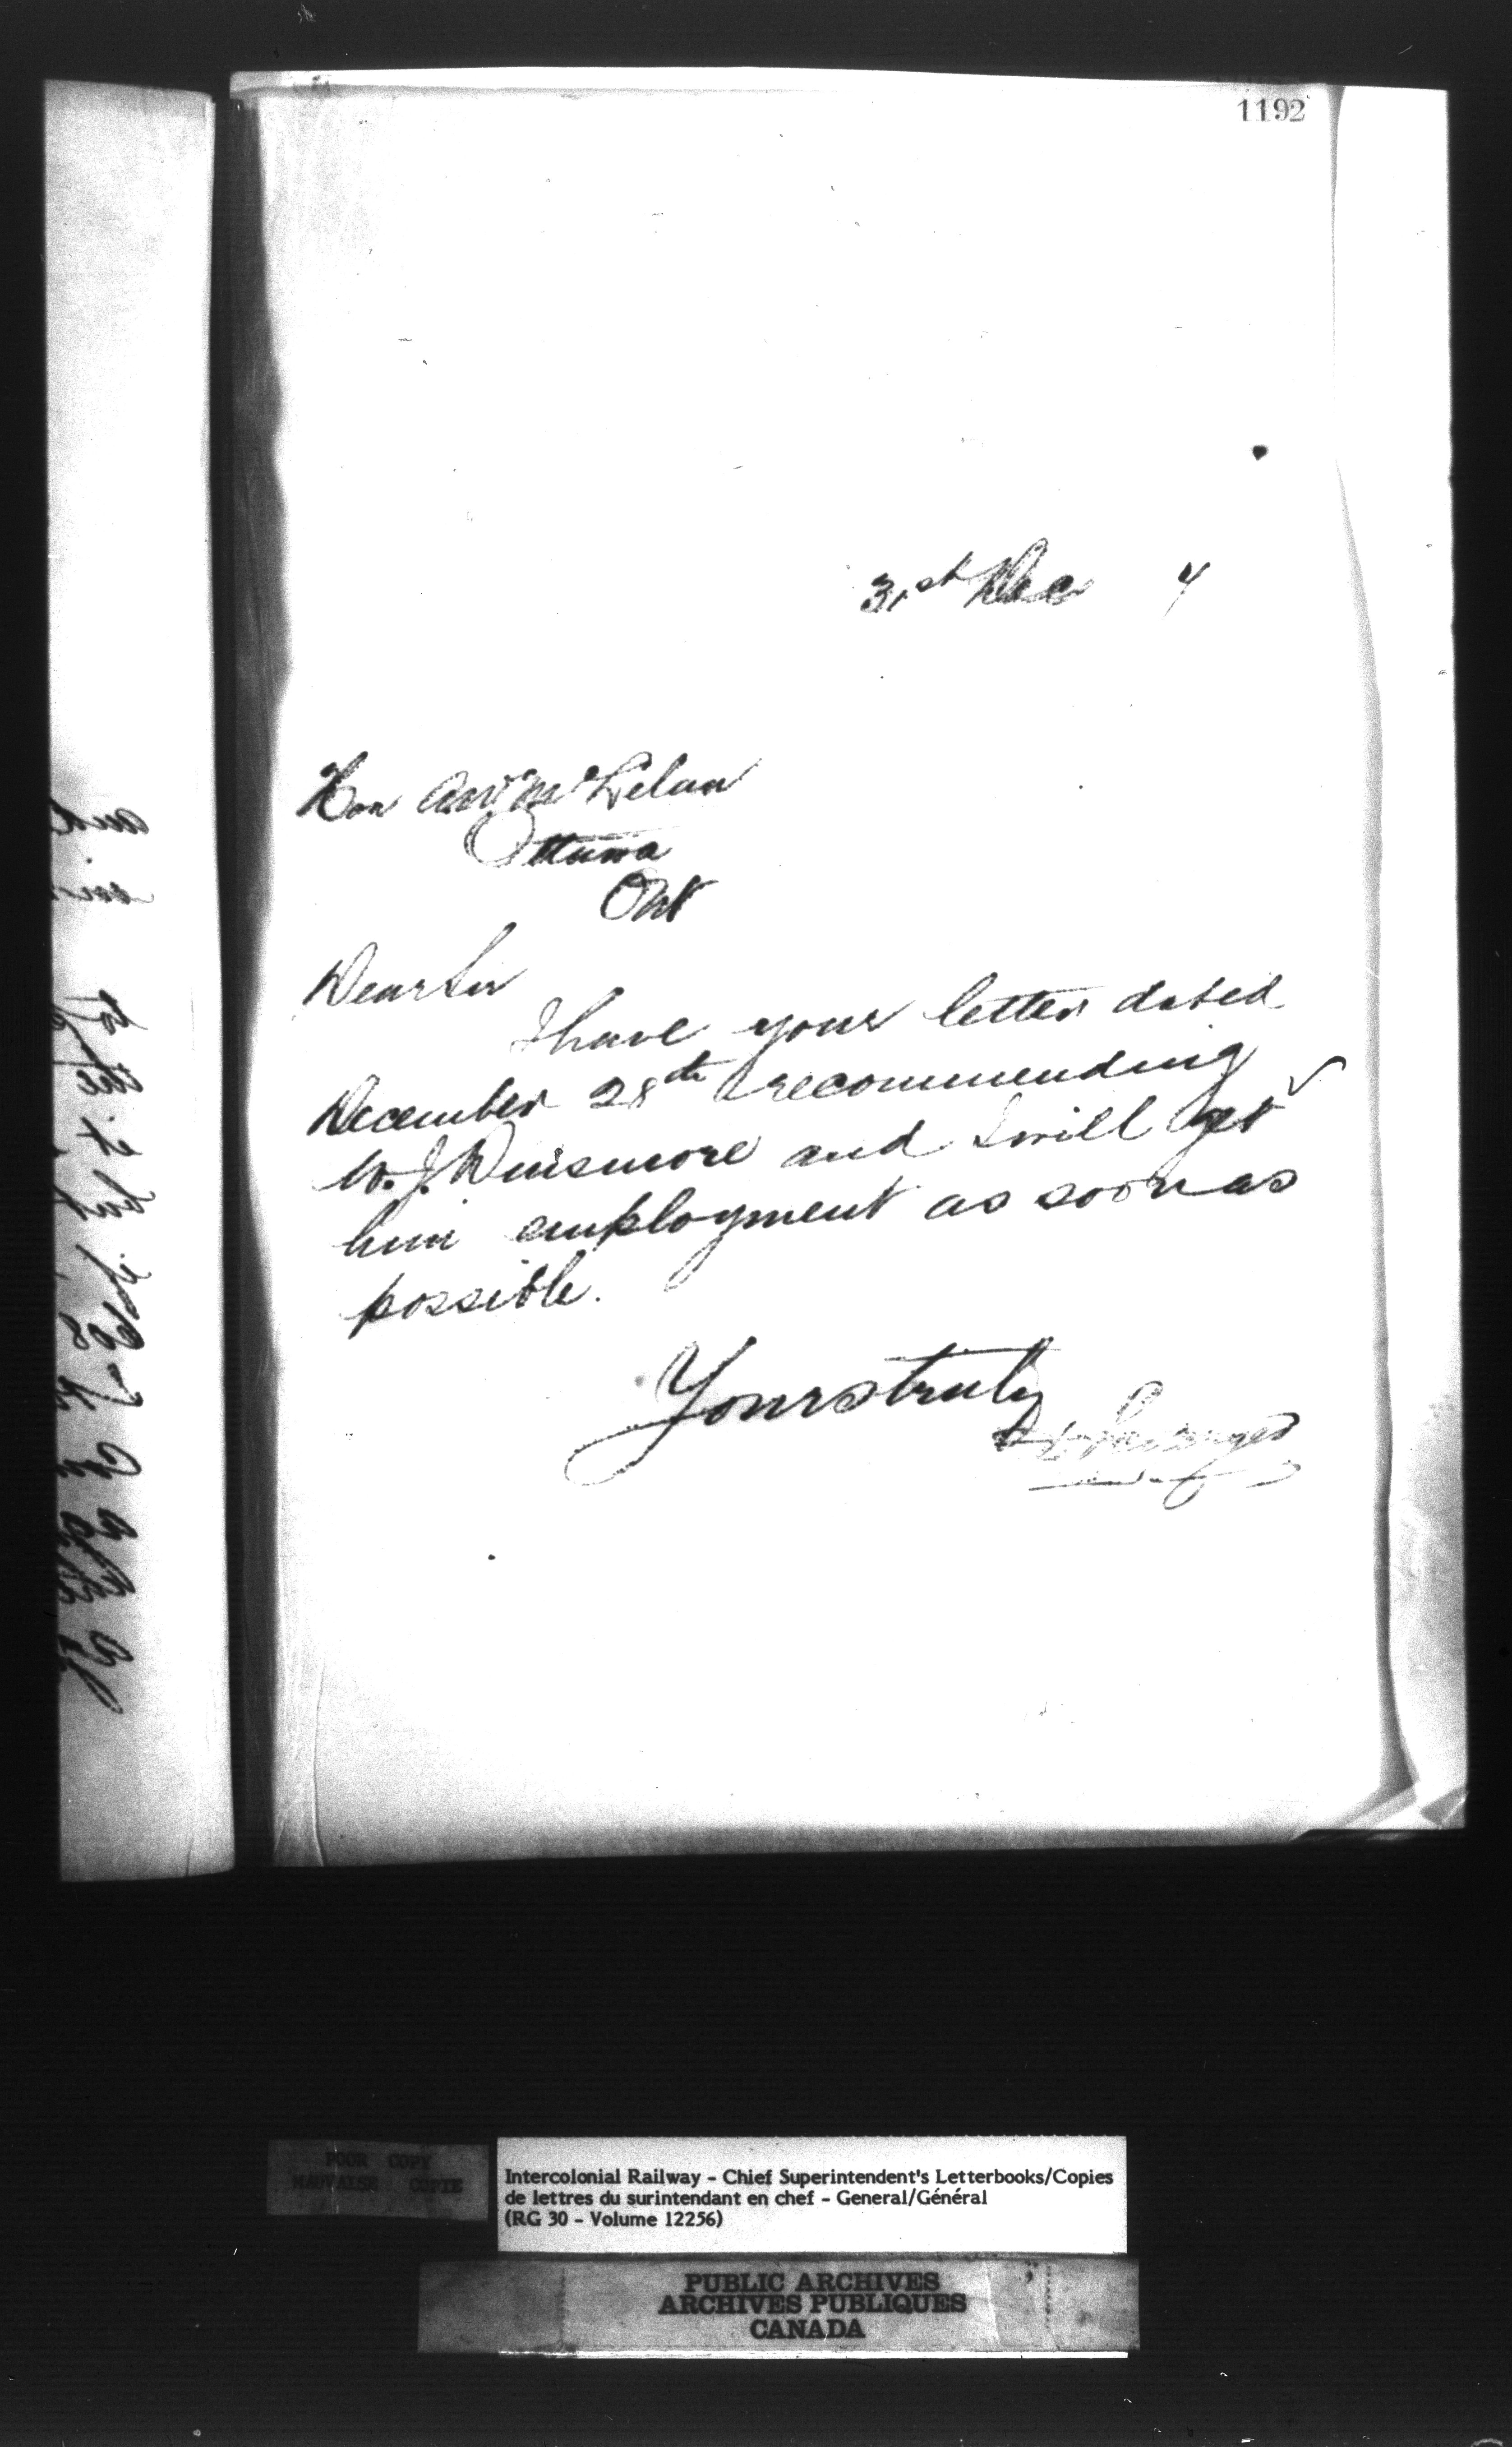 1192
31st Dec 4
Hon A W McLelan
Ottawa
Ont
Dear Sir
I have your letter dated
December 28th recommending
W. J. Dinsmore and I will get
him employment as soon as
possible.
Yours truly
POOR COPY
MAUVAISE COPIE
Intercolonial Railway - Chief Superintendent's Letterbooks/Copies
de lettres du surintendant en chef - General/Général
(RG 30 - Volume 12256)
PUBLIC ARCHIVES
ARCHIVES PUBLIQUES
CANADA